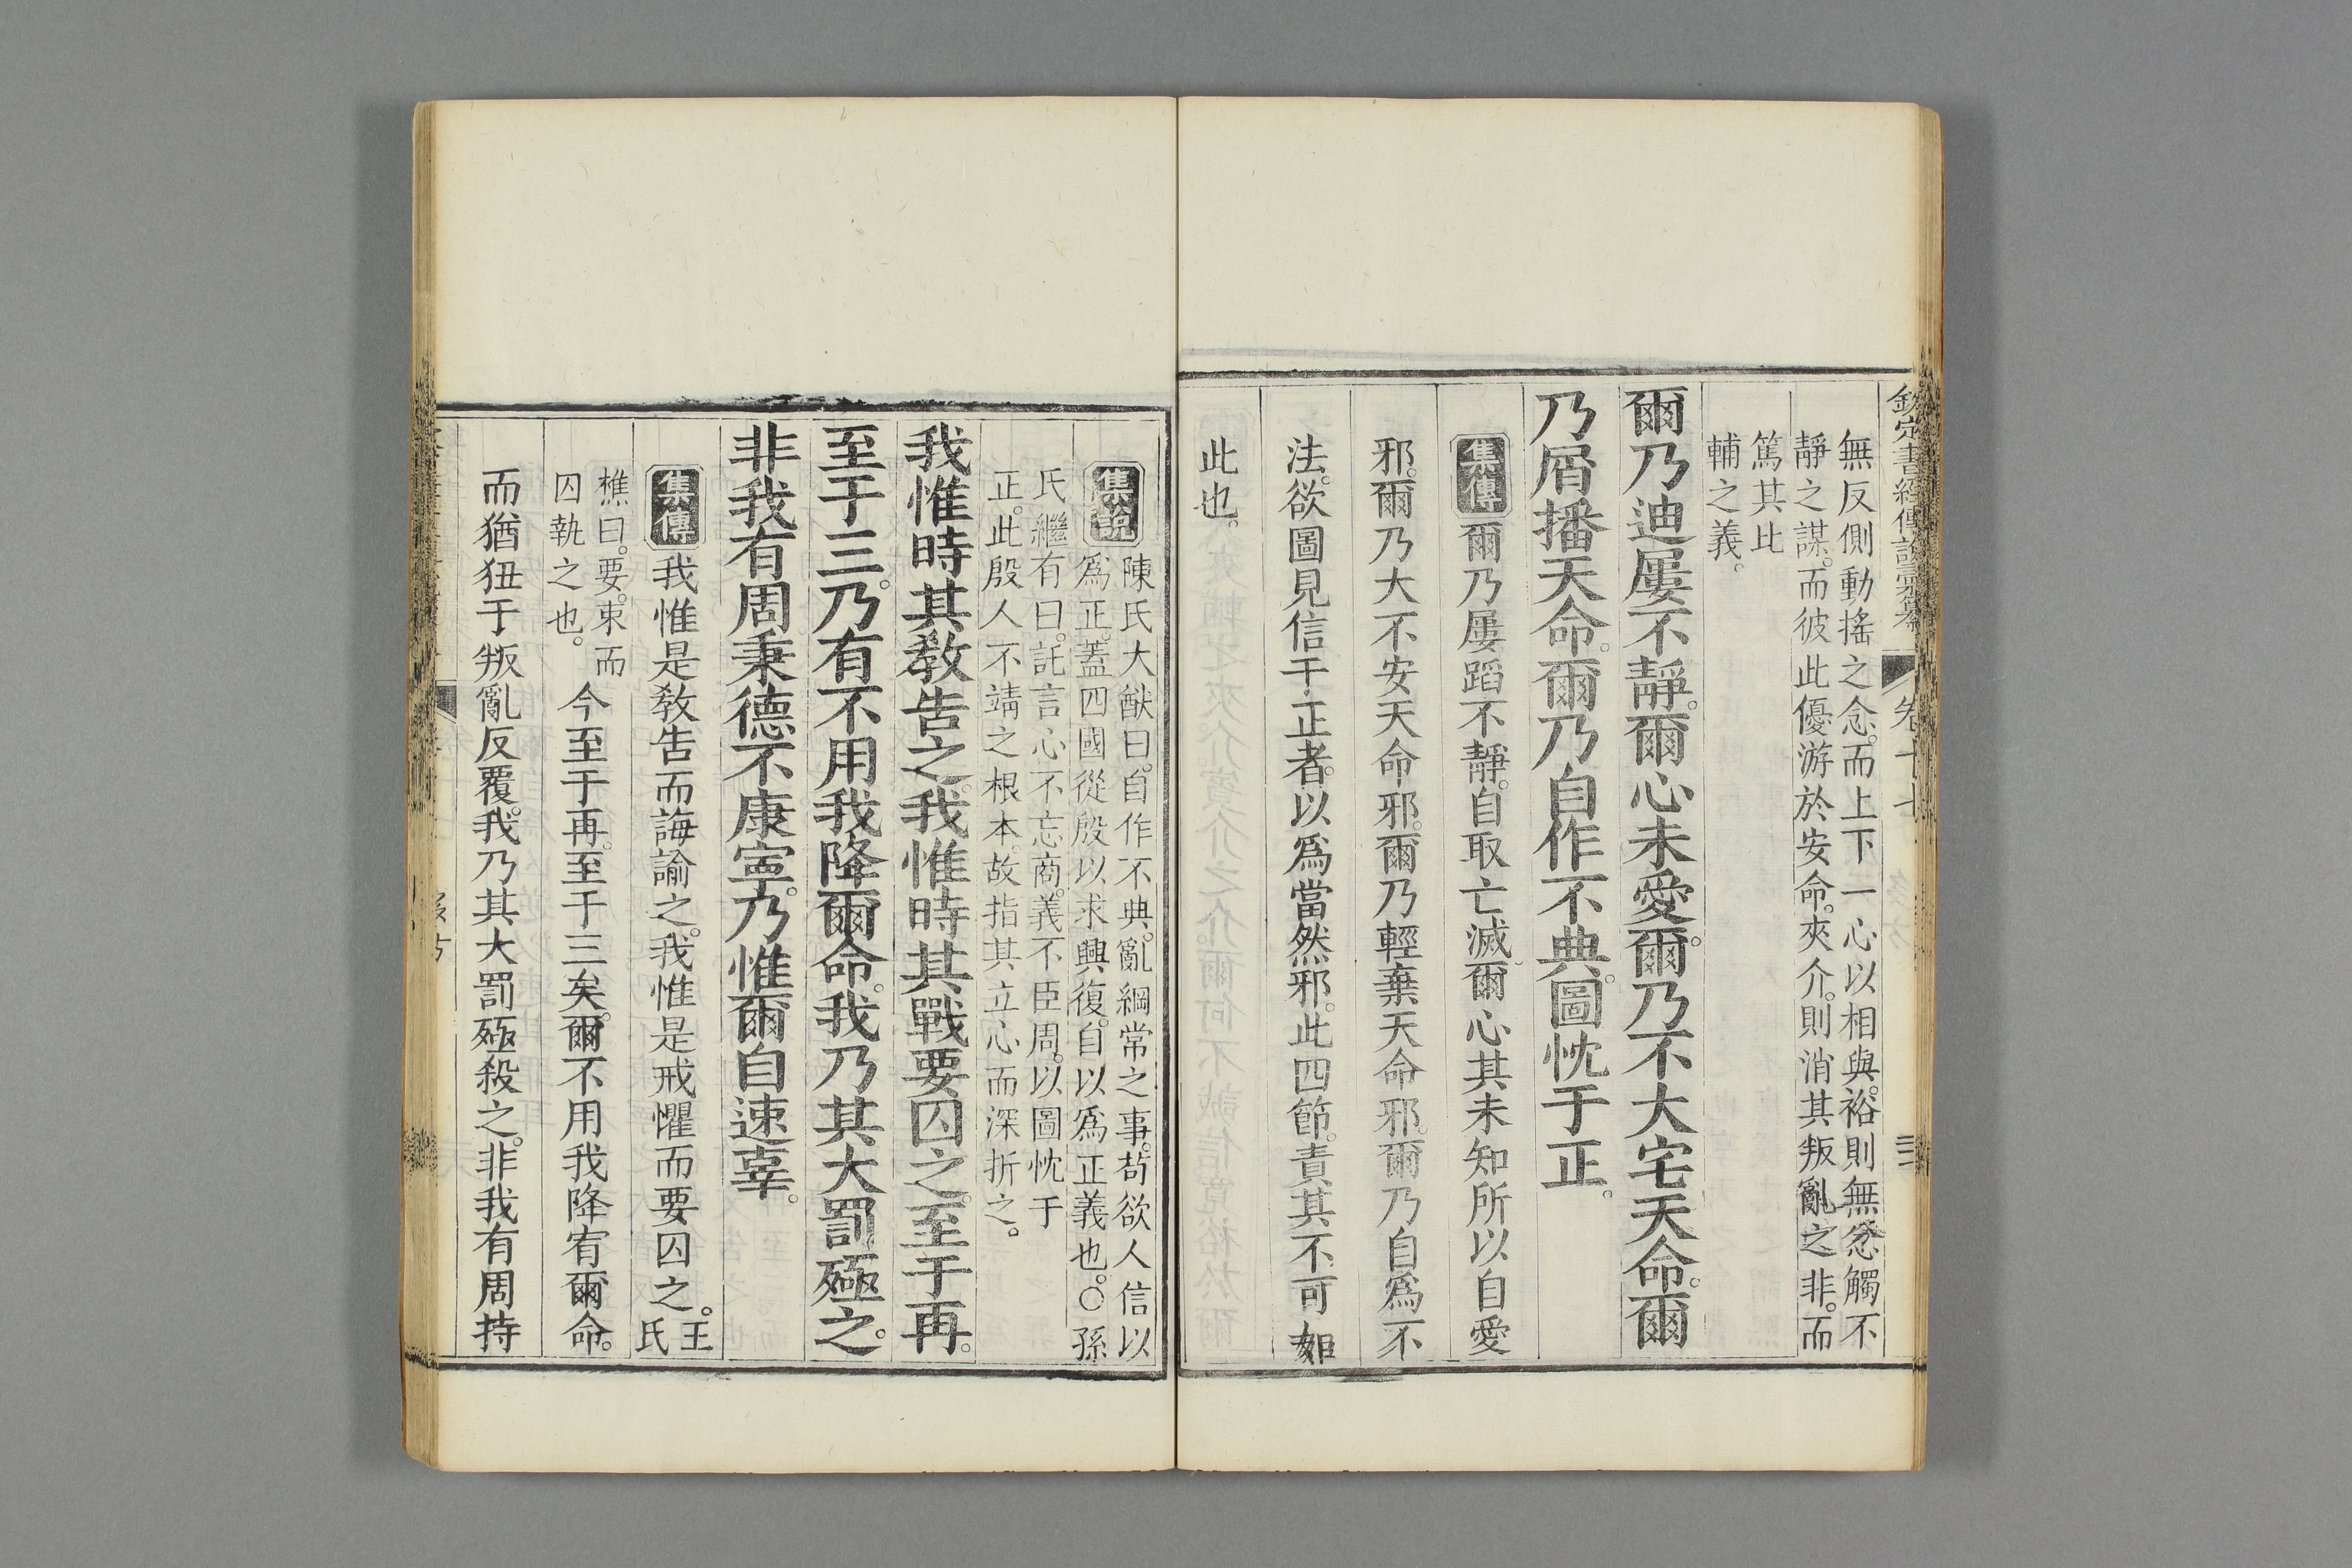 欽定書經傳說彙纂 卷十七
無反側動搖之念。而上下一心以相與。裕則無忿觸不
靜之謀。而彼此優游於安命。夾介。則消其叛亂之非。而
篤其比
輔之義。
爾乃迪屢不靜。爾心未愛。爾乃不大宅天命。爾
乃屑播天命。爾乃自作不典。圖忱于正。
集傳 爾乃屢蹈不靜。自取亡滅。爾心其未知所以自愛
邪。爾乃大不安天命邪。爾乃輕棄天命邪。爾乃自爲不
法。欲圖見信于正者。以爲當然邪。此四節。責其不可如
此也。
集說 陳氏大猷曰。自作不典。亂綱常之事。苟欲人信以
爲正。蓋四國從殷以求興復。自以爲正義也。○孫
氏繼有曰。託言心不忘商。義不臣周。以圖忱于
正。此殷人不靖之根本。故指其立心而深折之。
我惟時其敎告之。我惟時其戰要囚之。至于再。
至于三。乃有不用我降爾命。我乃其大罰殛之。
非我有周秉德不康寧。乃惟爾自速辜。
集傳 我惟是敎告而誨諭之。我惟是戒懼而要囚之。王氏
樵曰。要。束而
囚執之也。 今至于再。至于三矣。爾不用我降宥爾命。
而猶狃于叛亂反覆。我乃其大罰殛殺之。非我有周持
多方